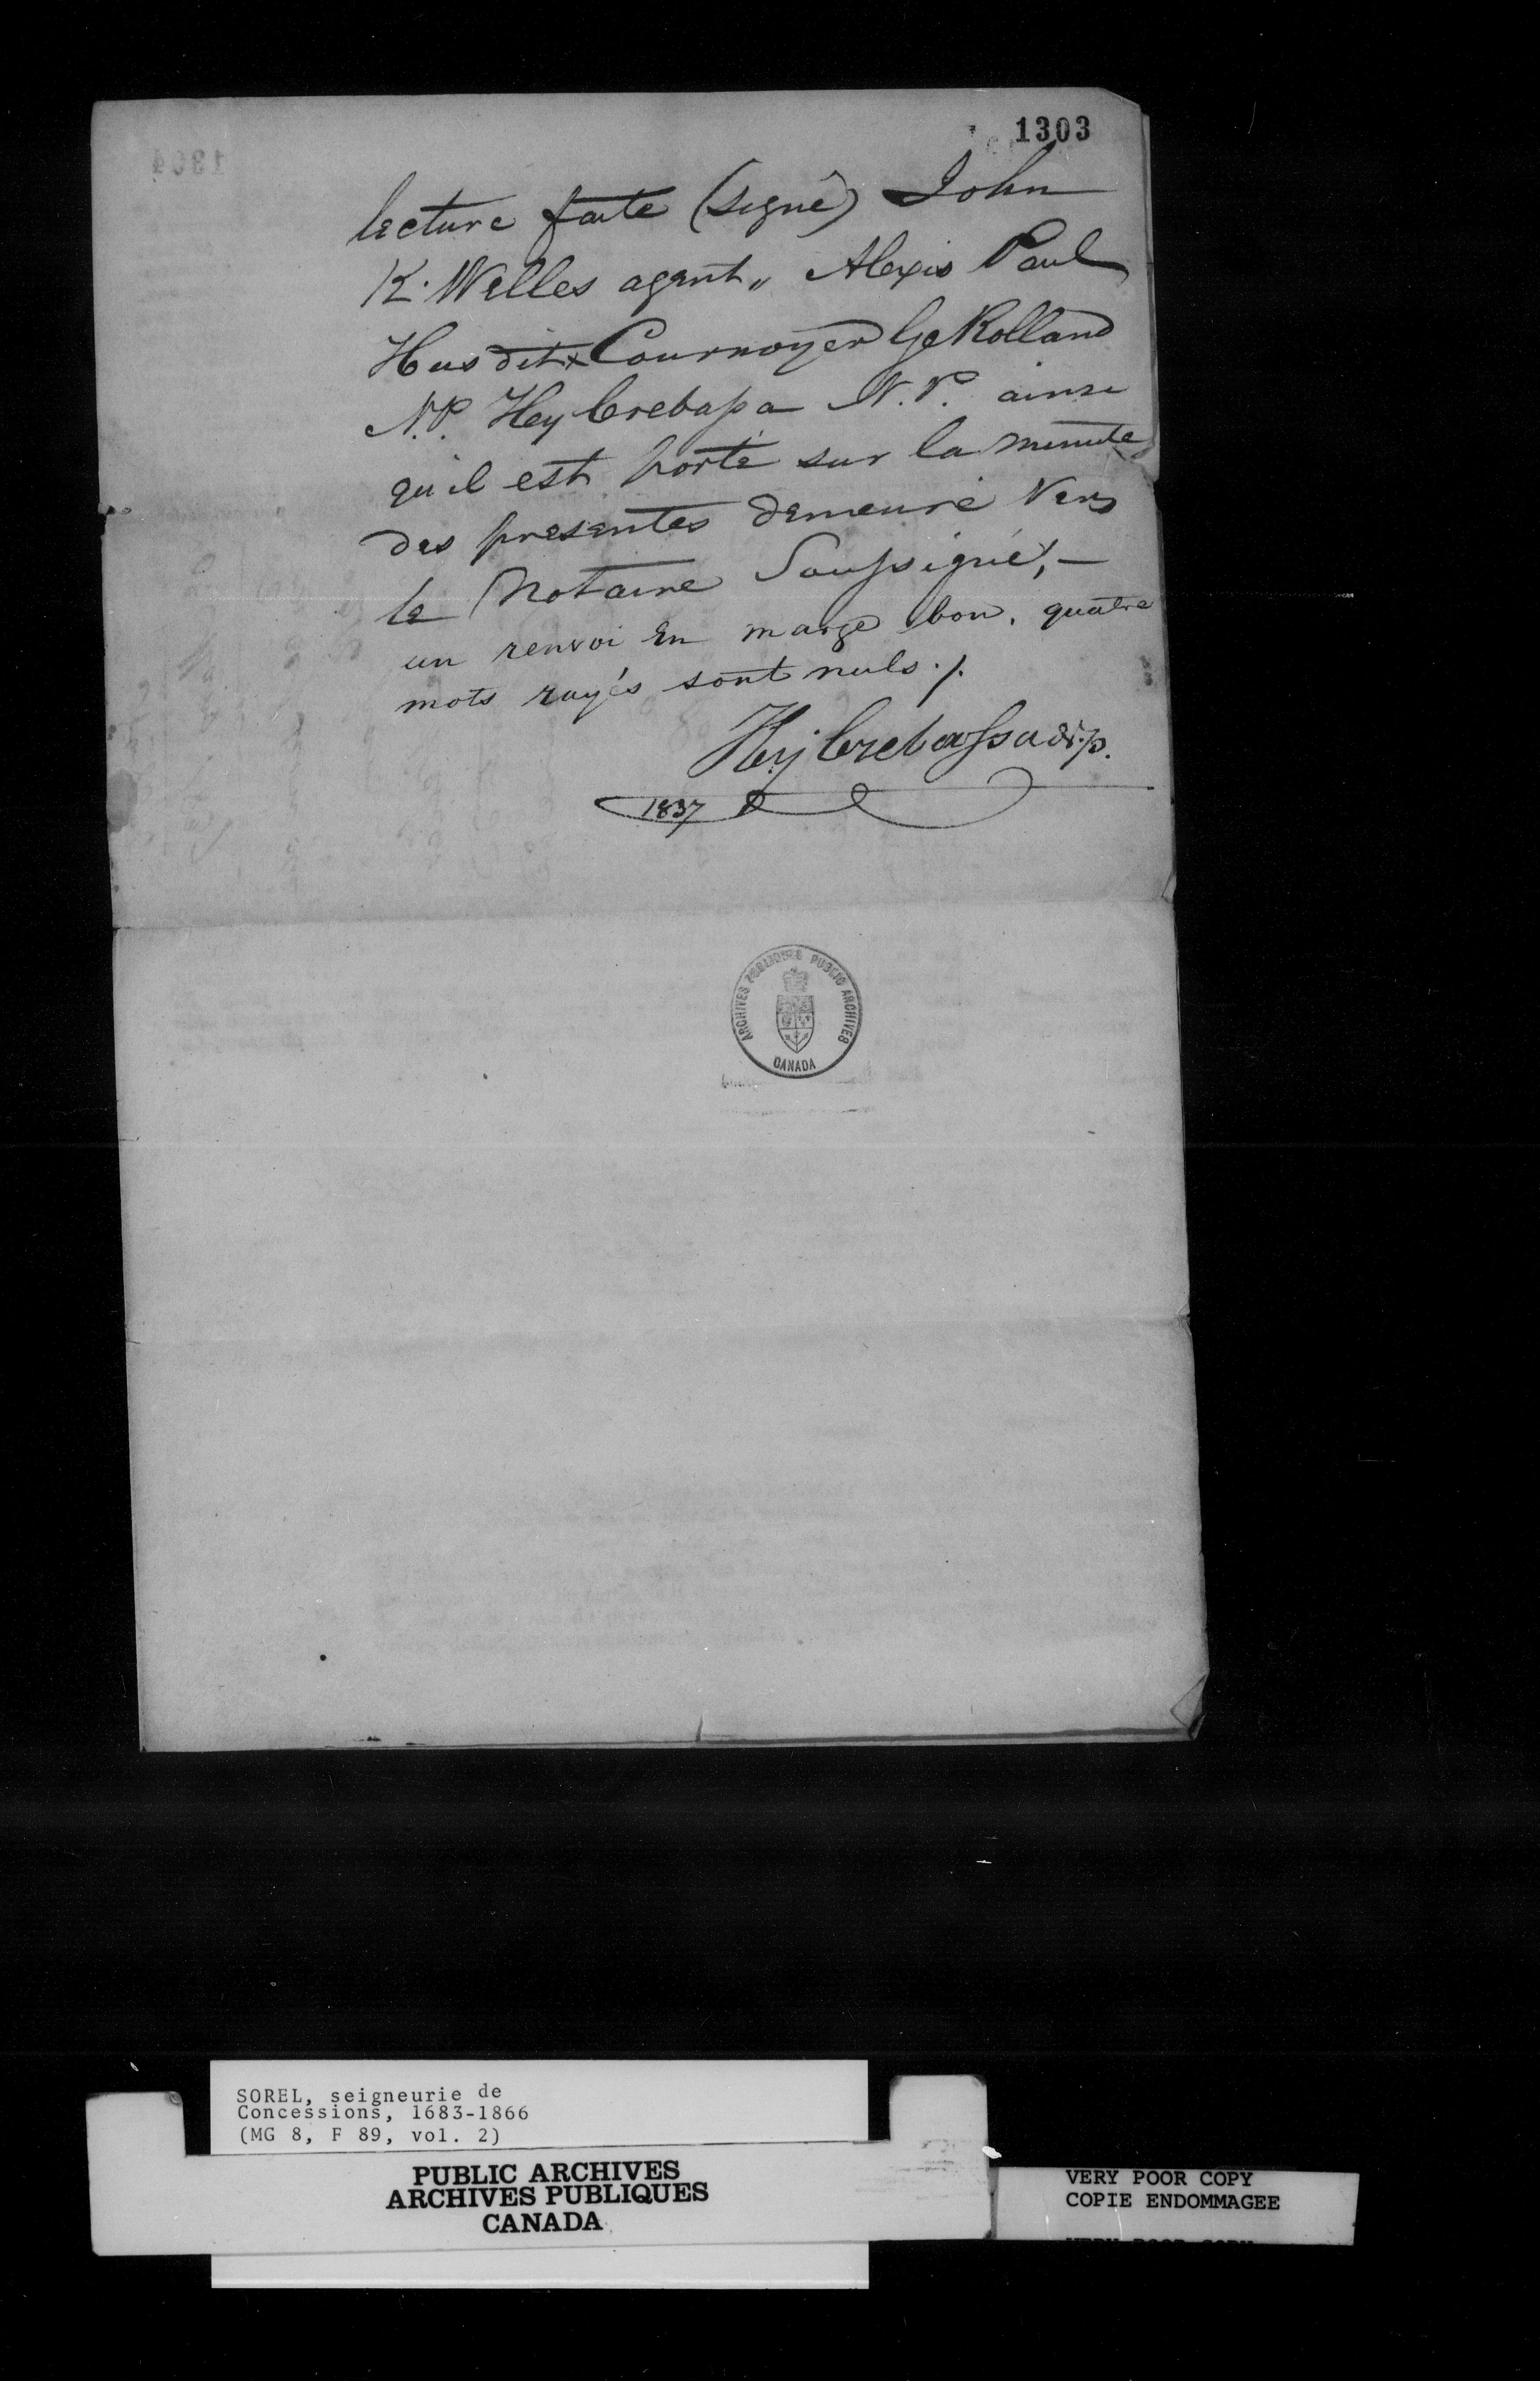 1303
lecture faite (signé) John
K. Welles agent „ Alexis Paul
Hus dit x Cournoyer Ge Rolland
N.P. Hey Crebassa N.P. ainsi
qu'il est porté sur la minute
des presentes demeuré vers
le Notaire Soussigné, –
un renvoi En marge bon. quatre
mots rayés sont nuls ./.
Hey Crebassa N.p.
1837
ARCHIVES PUBLIQUES PUBLIC ARCHIVES
CANADA
SOREL, seigneurie de
Concessions, 1683-1866
(MG 8, F 89, vol. 2)
PUBLIC ARCHIVES
ARCHIVES PUBLIQUES
CANADA
VERY POOR COPY
COPIE ENDOMMAGEE
VERY POOR COPY